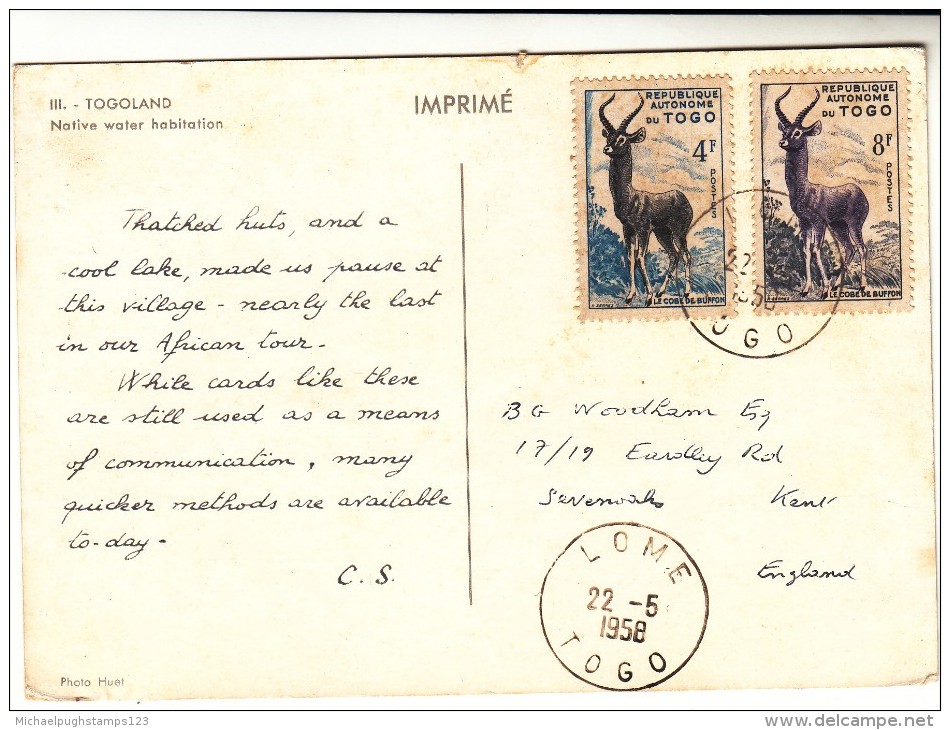 III. - TOGOLAND
Native water habitation
IMPRIMÉ
REPUBLIQUE
AUTONOME
DU TOGO
4F
POSTES
LE COBE DE BUFFON
REPUBLIQUE
AUTONOME
DU TOGO
8F
POSTES
LE COBE DE BUFFON
22
195
OGO
Thatched huts, and a
cool lake, made us pause at
this village - nearly the last
in our African tour -
While cards like these
are still used as a means
of communication, many
quicker methods are available
to-day -
C. S.
B G Woodham Esq
17/19 Eardley Rd
Sevenoaks Kent
England
LOME
22 -5
1958
TOGO
Photo Huet
Michaelpughstamps123
www.delcampe.net